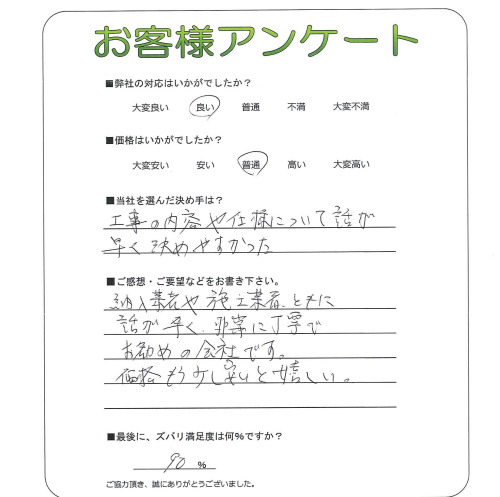 お客様アンケート
■弊社の対応はいかがでしたか？
大変良い 良い 普通 不満 大変不満
■価格はいかがでしたか？
大変安い 安い 普通 高い 大変高い
■当社を選んだ決め手は？
工事の内容や仕様について話が
早く決めやすかった
■ご感想・ご要望などをお書き下さい。
納入業者や施工業者、ともに
話が早く、非常に丁寧で
お勧めの会社です。
価格もう少し安いと嬉しい。
■最後に、ズバリ満足度は何%ですか？
90 %
ご協力頂き、誠にありがとうございました。